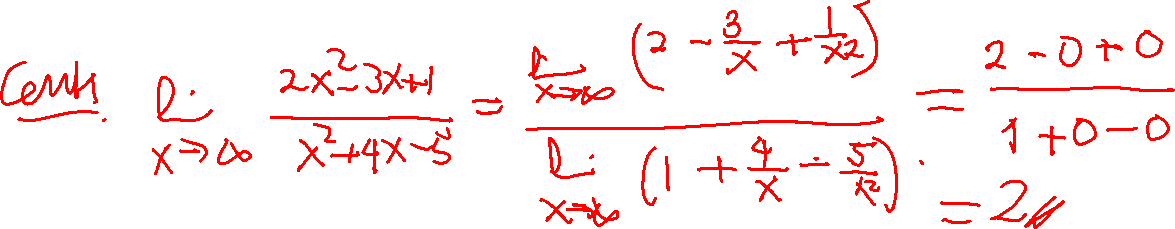 Contoh lim x→∞ (2x²-3x+1)/(x²+4x-5) = lim x→∞ (2 - 3/x + 1/x2) / lim x→∞ (1 + 4/x - 5/x²) = (2-0+0)/(1+0-0)
= 2//